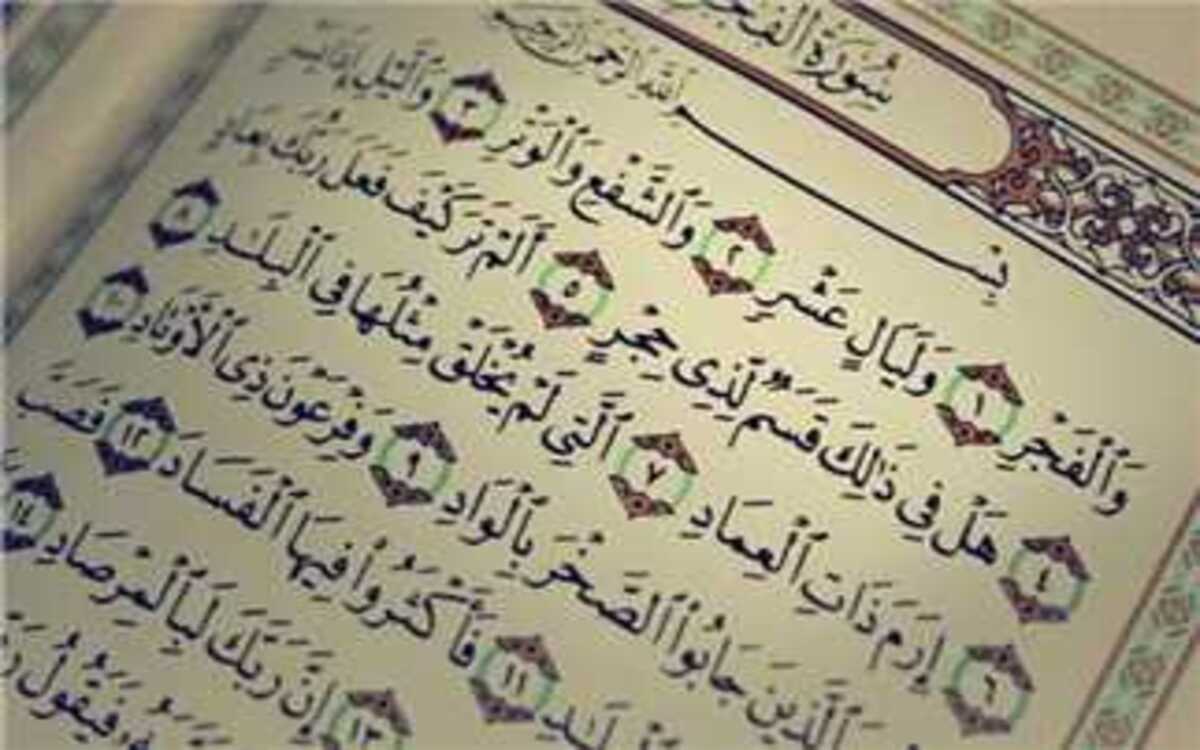 سُورَةُ الفَجْرِ
بِسْمِ اللَّهِ الرَّحْمَنِ الرَّحِيمِ
وَٱلْفَجْرِ ١ وَلَيَالٍ عَشْرٍ ٢ وَٱلشَّفْعِ وَٱلْوَتْرِ ٣ وَٱلَّيْلِ إِذَا يَسْرِ
٤ هَلْ فِى ذَٰلِكَ قَسَمٌ لِّذِى حِجْرٍ ٥ أَلَمْ تَرَ كَيْفَ فَعَلَ رَبُّكَ بِعَادٍ
٦ إِرَمَ ذَاتِ ٱلْعِمَادِ ٧ ٱلَّتِى لَمْ يُخْلَقْ مِثْلُهَا فِى ٱلْبِلَٰدِ ٨
ٱلَّذِينَ جَابُوا۟ ٱلصَّخْرَ بِٱلْوَادِ ٩ وَفِرْعَوْنَ ذِى ٱلْأَوْتَادِ ١٠
١١ فَأَكْثَرُوا۟ فِيهَا ٱلْفَسَادَ ١٢ فَصَبَّ
١٣ إِنَّ رَبَّكَ لَبِٱلْمِرْصَادِ ١٤
فَيَقُولُ